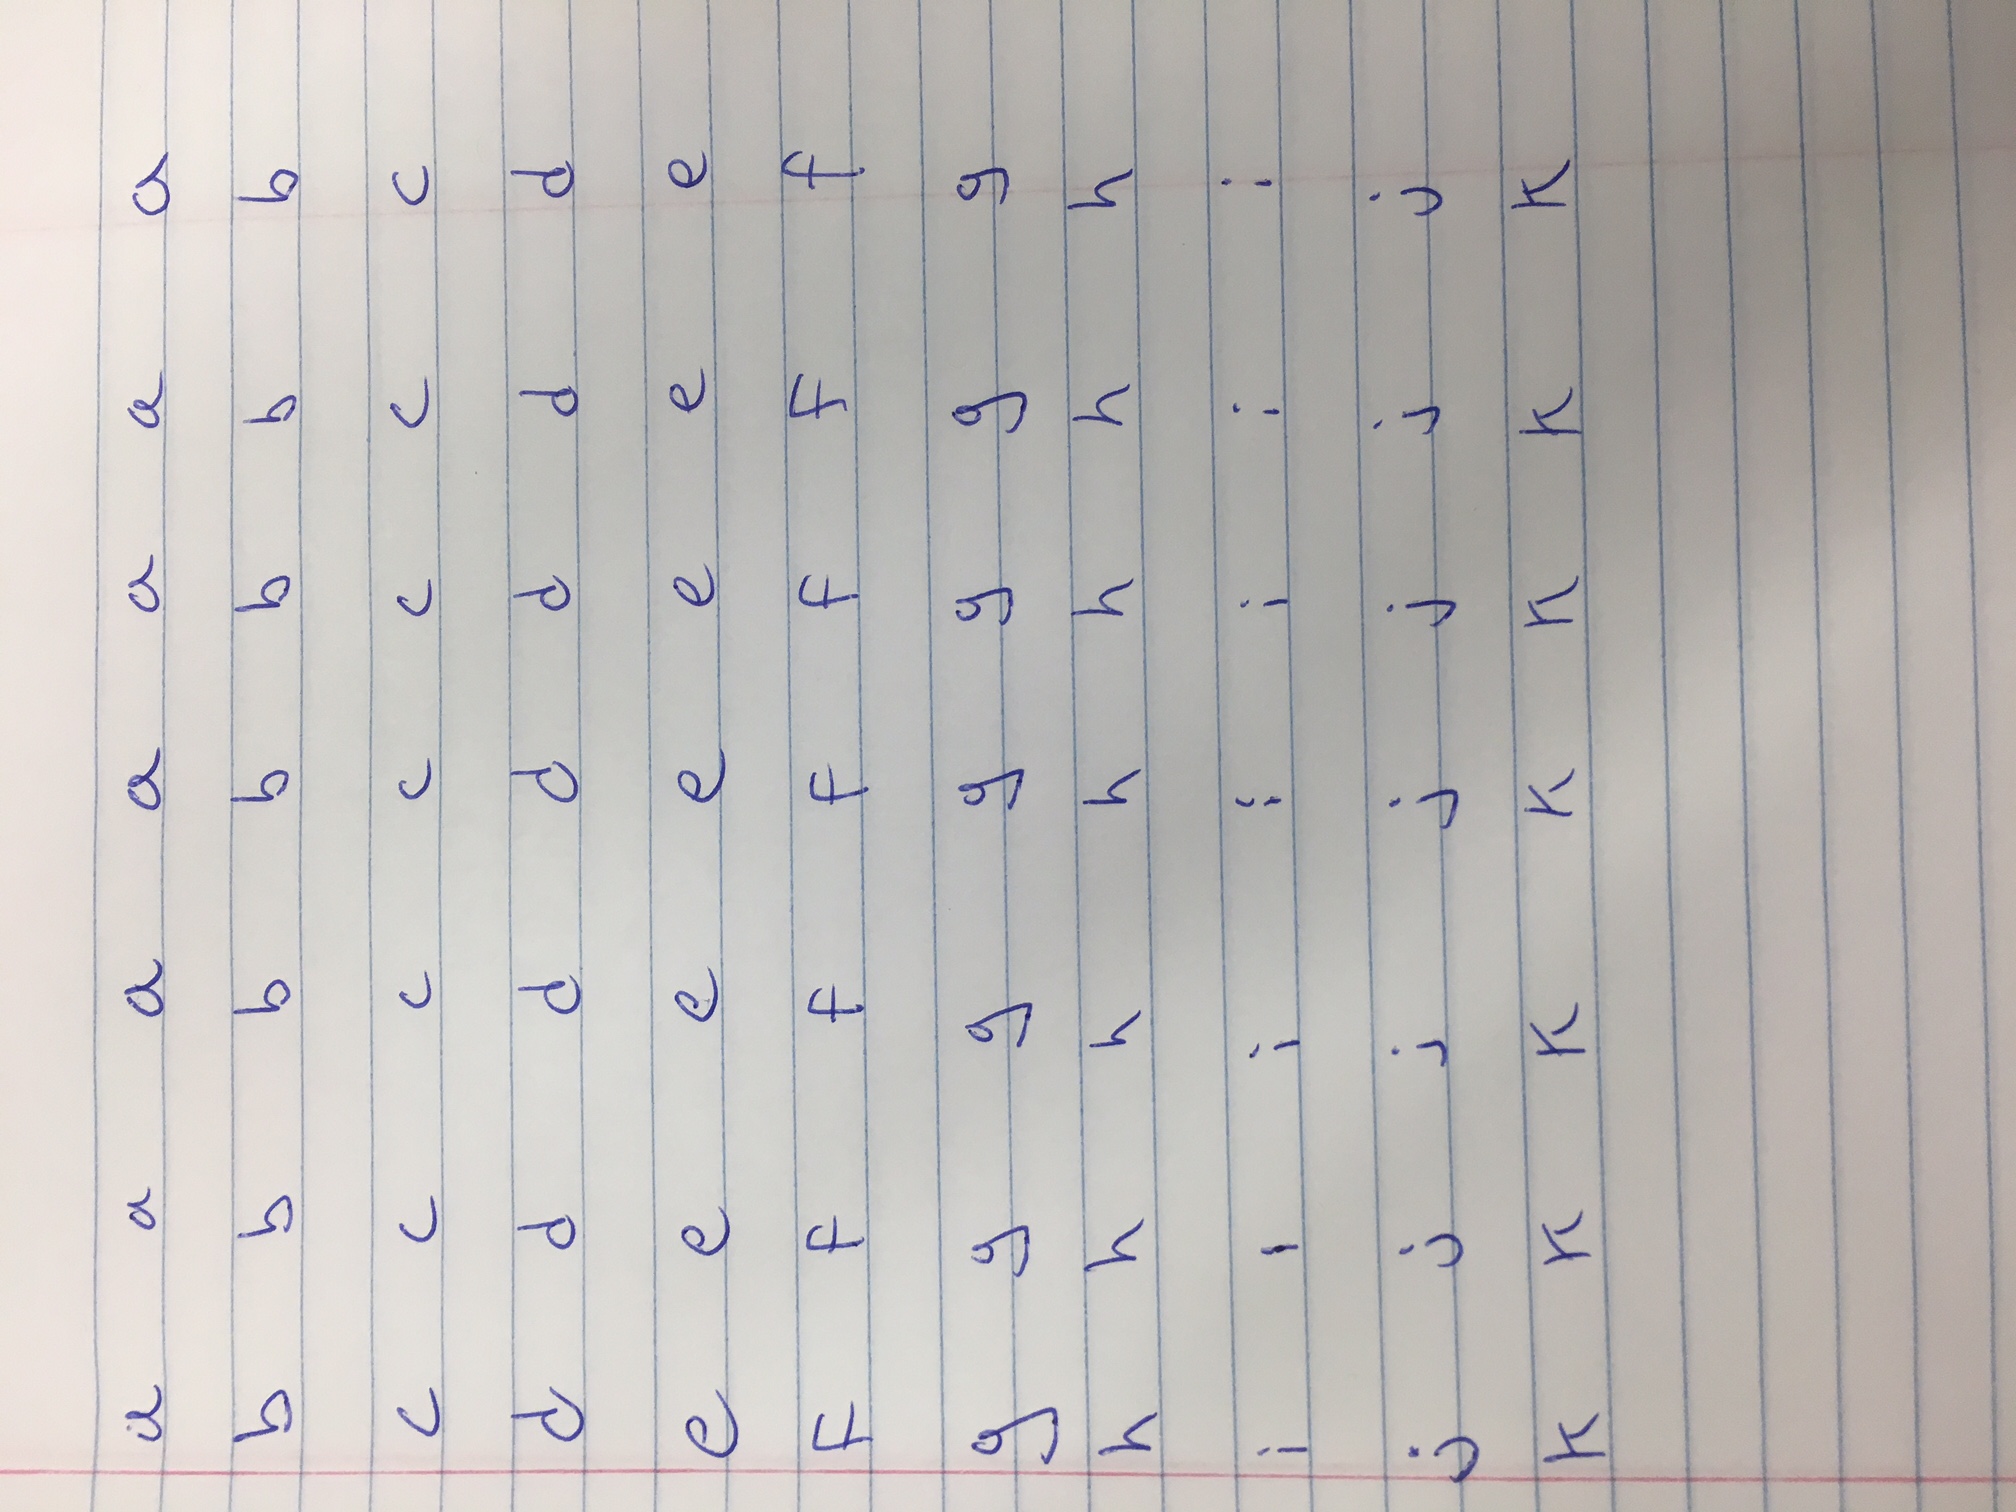 a a a a a a a
b b b b b b b
c c c c c c c
d d d d d d d
e e e e e e e
F f f F f F f
g g g g g g g
h h h h h h h
i i i i i i i
j j j j j j j
K K K K K K K